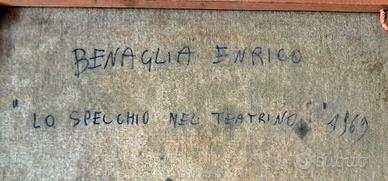 BENAGLIA ENRICO
"LO SPECCHIO NEL TEATRINO" 1969
SUBITO